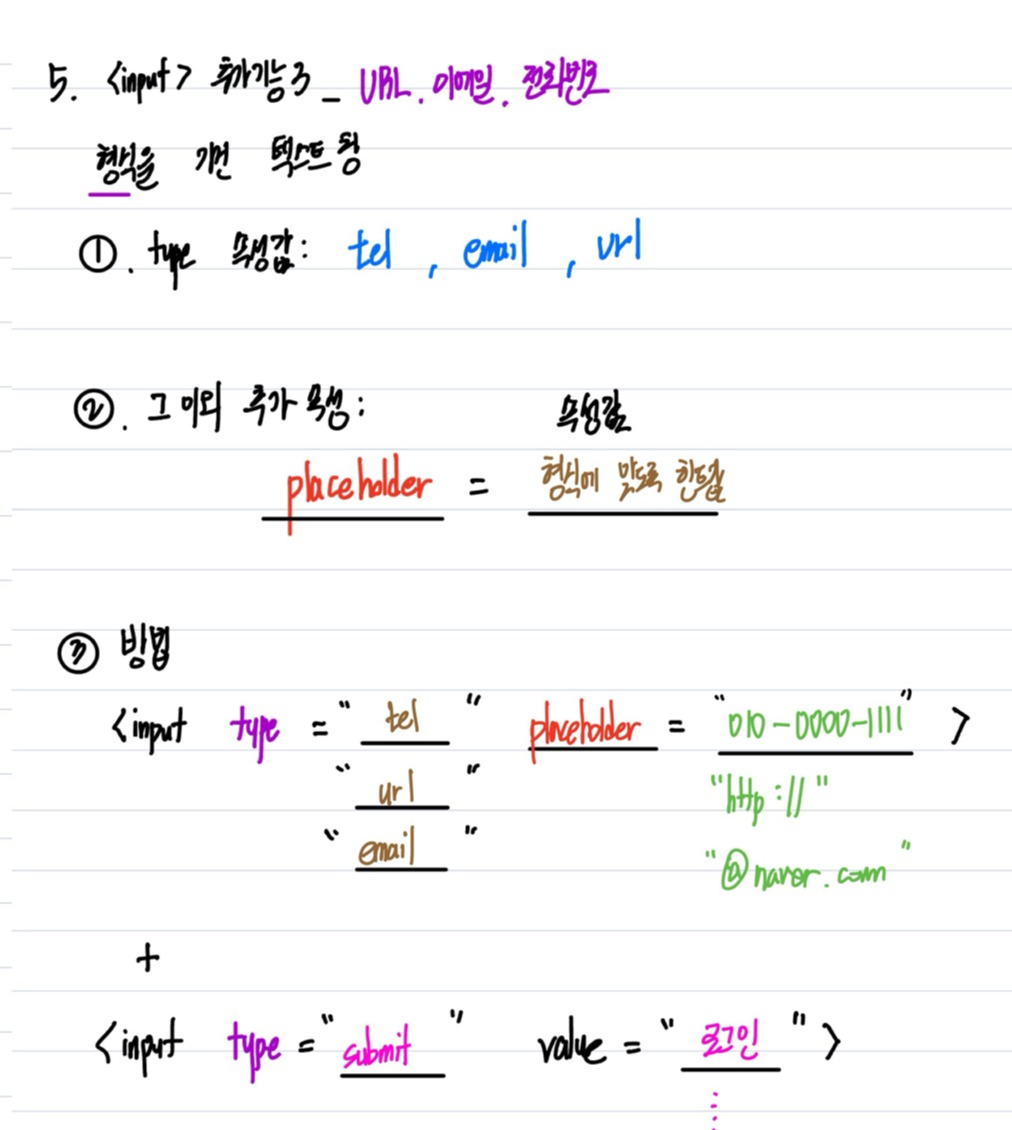 5. <input> 추가기능3 _ URL. 이메일. 전화번호
형식을 가진 텍스트 창
①. type 속성값: tel , email , url
②. 그 이외 추가 속성: 속성값
placeholder = 형식에 맞도록 힌트값
③ 방법
<input type = "tel" placeholder = "010-0000-1111" >
"url" "http://"
"email" "@naver.com"
+
<input type = "submit" value = "로그인">